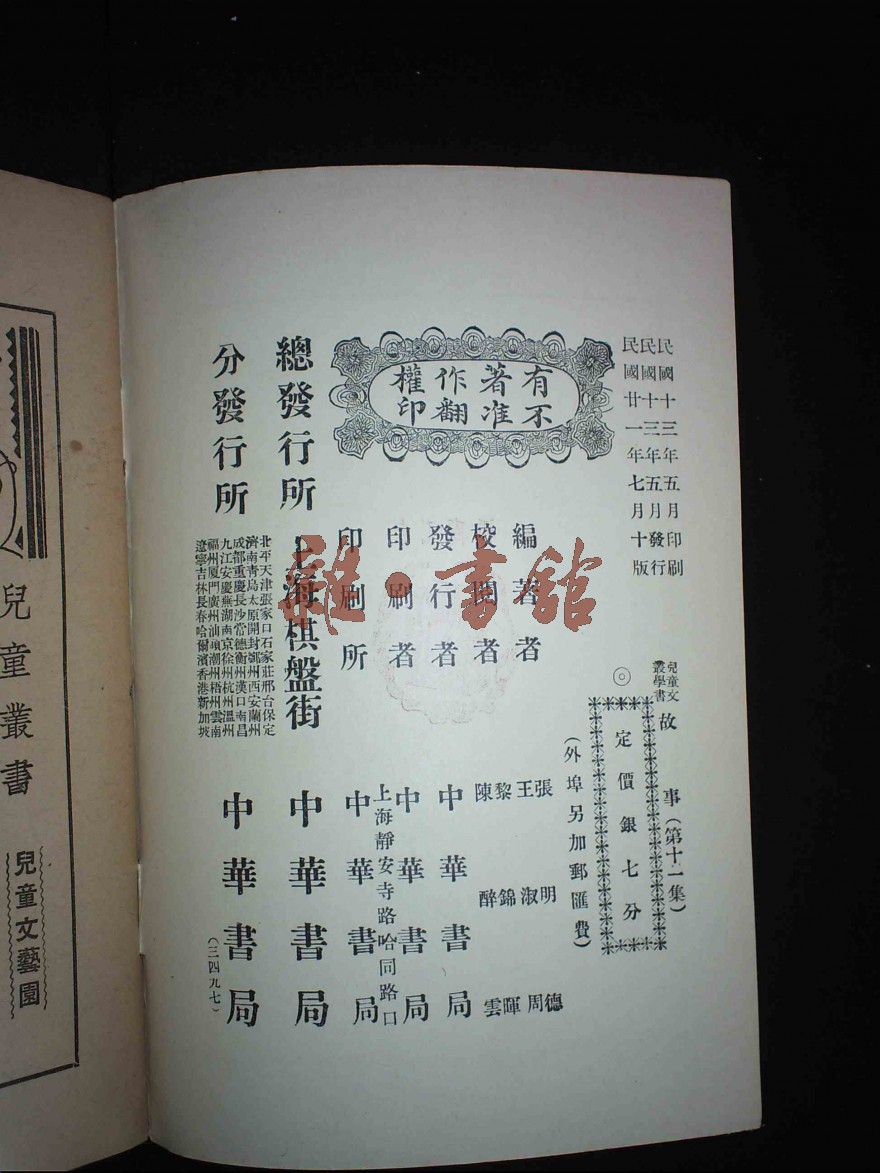 民國十三年五月印刷
民國十三年五月發行
民國廿一年七月十版
兒童文
學叢書
故事(第十二集)
◎
定價銀七分
(外埠另加郵匯費)
有著作權
不准翻印
編著者 張明德
王淑周
校閱者 黎錦暉
陳醉雲
發行者 中華書局
印刷者 中華書局
印刷所 上海靜安寺路哈同路口
中華書局
總發行所 上海棋盤街 中華書局
分發行所
北平天津張家口石家莊邢台保定
濟南青島太原開封鄭州西安蘭州
成都重慶長沙常德衡州漢口南昌
九江安慶蕪湖南京徐州杭州溫州
福州廈門廣州汕頭潮州梧州雲南
遼寧吉林長春哈爾濱香港新加坡
中華書局
(三四九七)
兒童叢書
兒童文藝園
雜·書館